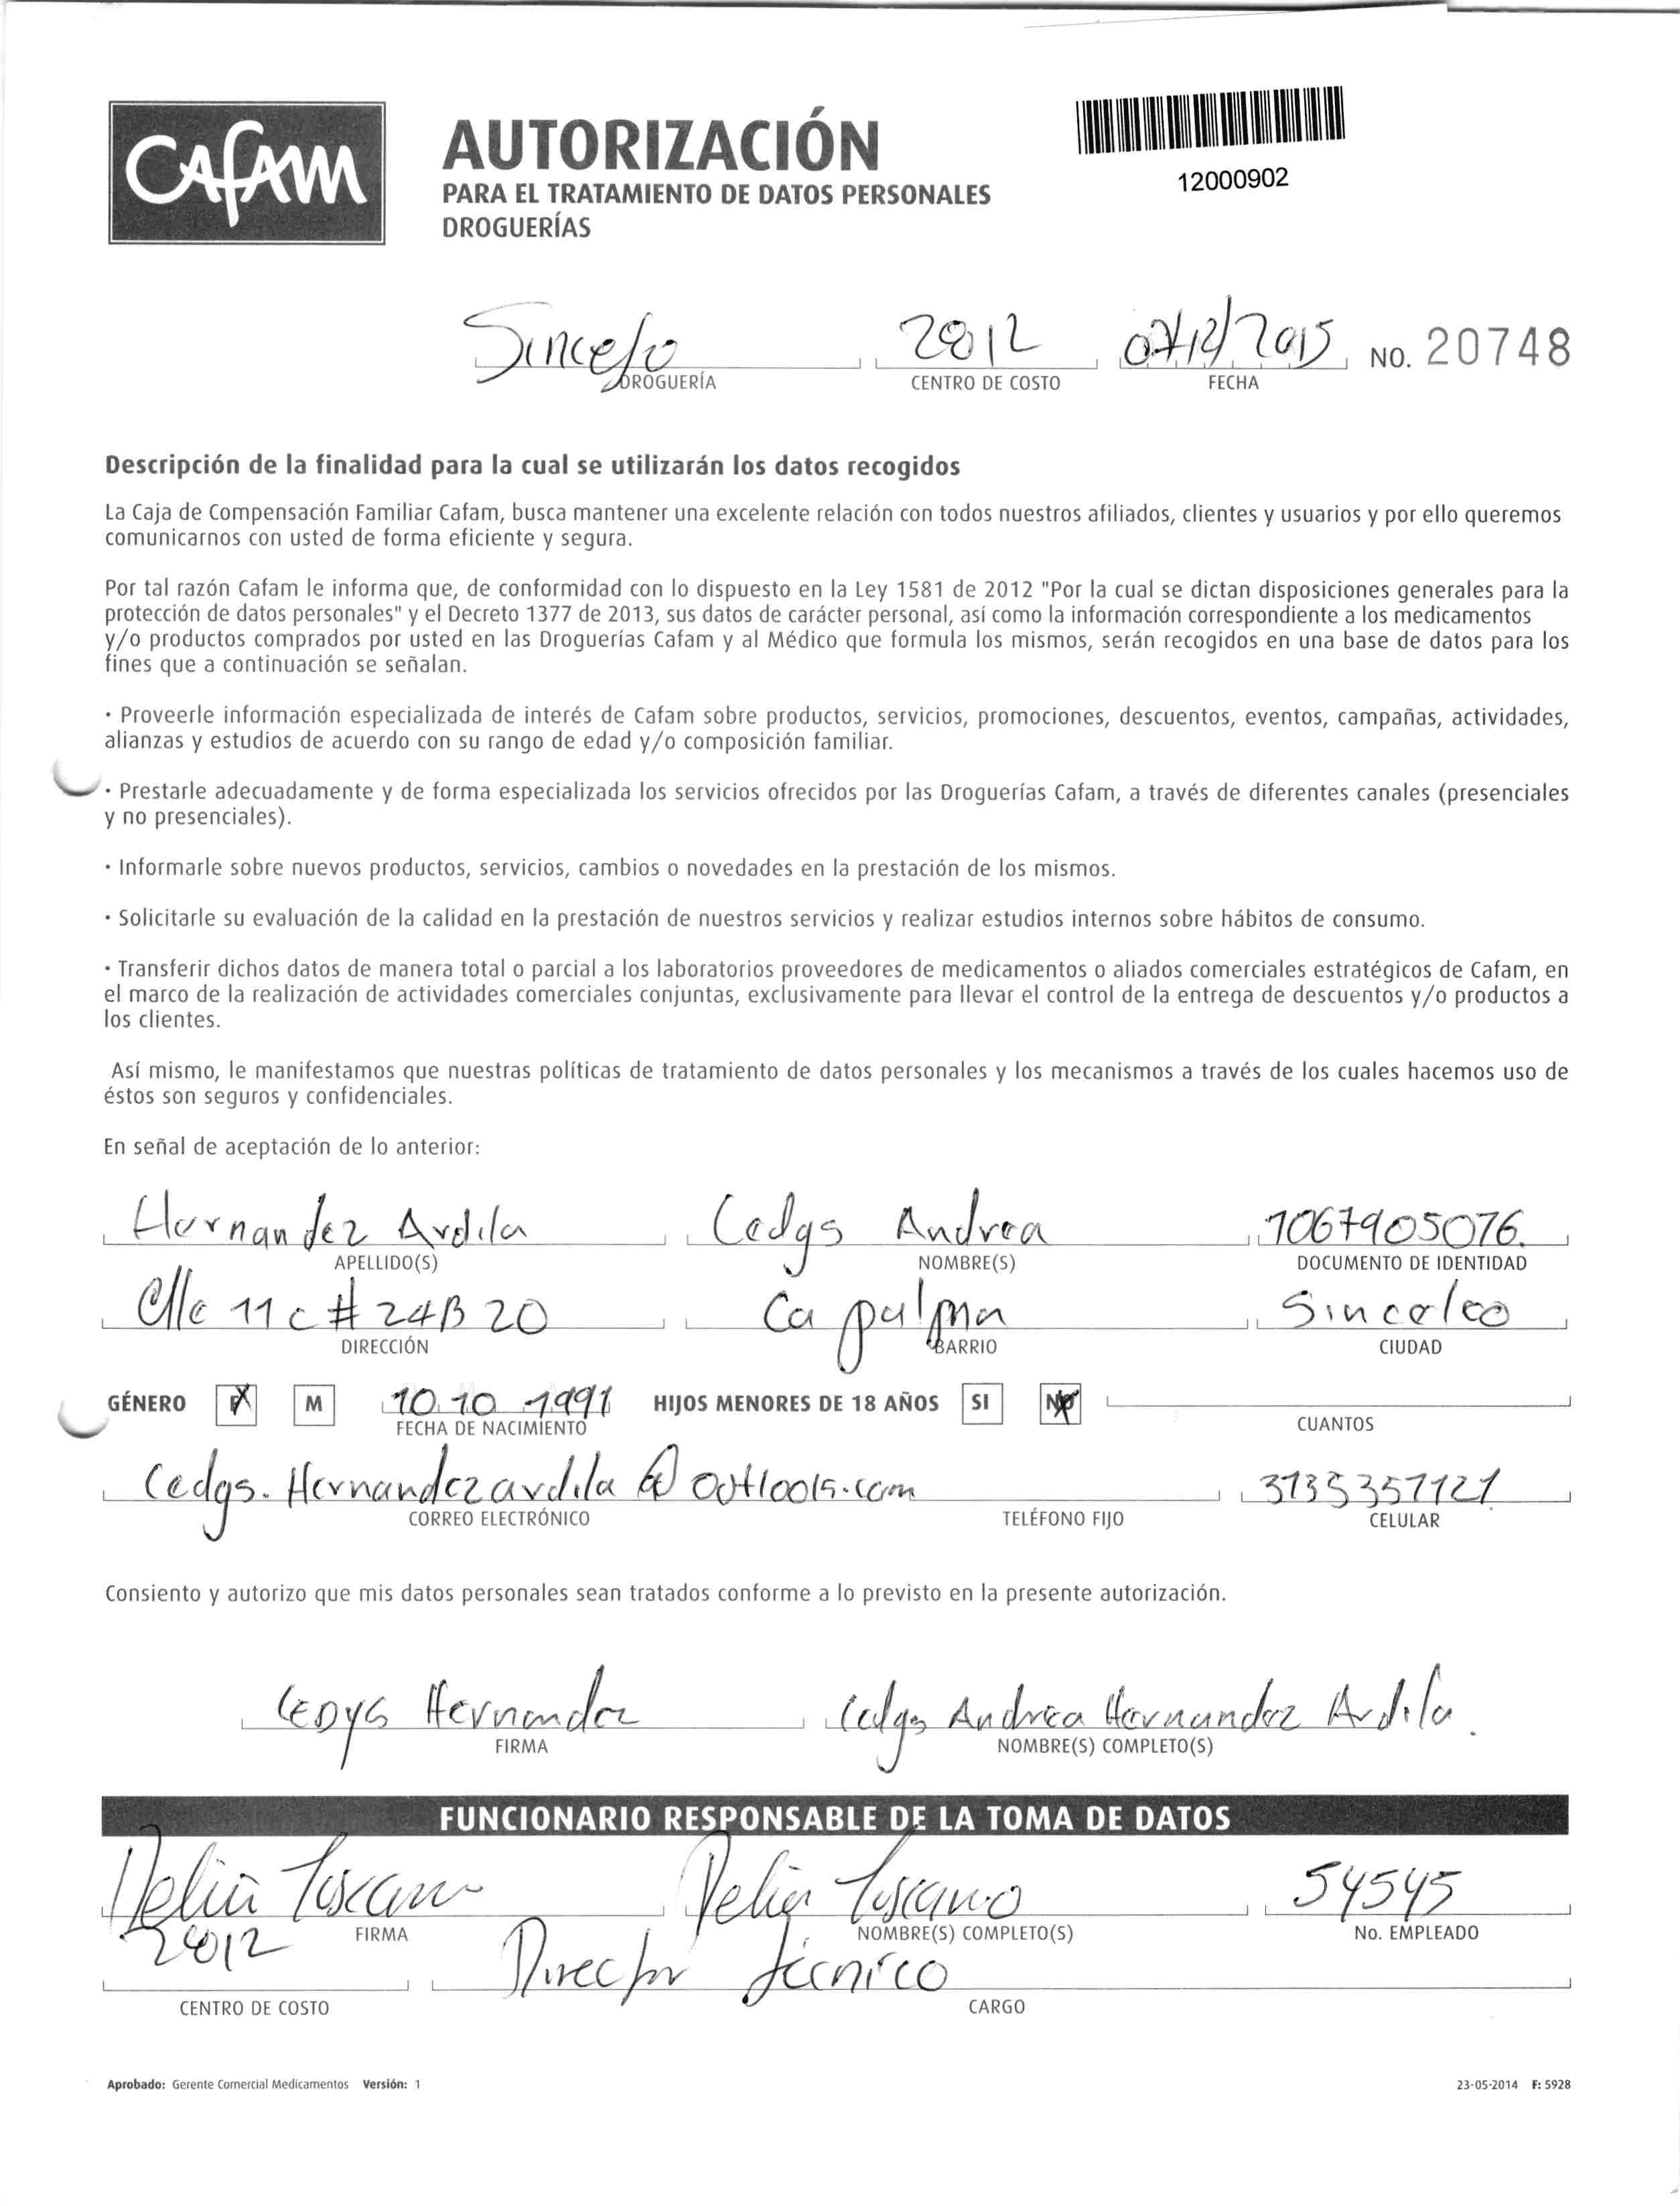 CAFAM
AUTORIZACIÓN
PARA EL TRATAMIENTO DE DATOS PERSONALES
DROGUERÍAS
12000902
Sincelejo 2812 07/12/2015 NO. 20748
DROGUERÍA CENTRO DE COSTO FECHA
Descripción de la finalidad para la cual se utilizarán los datos recogidos
La Caja de Compensación Familiar Cafam, busca mantener una excelente relación con todos nuestros afiliados, clientes y usuarios y por ello queremos
comunicarnos con usted de forma eficiente y segura.
Por tal razón Cafam le informa que, de conformidad con lo dispuesto en la Ley 1581 de 2012 "Por la cual se dictan disposiciones generales para la
protección de datos personales" y el Decreto 1377 de 2013, sus datos de carácter personal, así como la información correspondiente a los medicamentos
y/o productos comprados por usted en las Droguerías Cafam y al Médico que formula los mismos, serán recogidos en una base de datos para los
fines que a continuación se señalan.
· Proveerle información especializada de interés de Cafam sobre productos, servicios, promociones, descuentos, eventos, campañas, actividades,
alianzas y estudios de acuerdo con su rango de edad y/o composición familiar.
· Prestarle adecuadamente y de forma especializada los servicios ofrecidos por las Droguerías Cafam, a través de diferentes canales (presenciales
y no presenciales).
· Informarle sobre nuevos productos, servicios, cambios o novedades en la prestación de los mismos.
· Solicitarle su evaluación de la calidad en la prestación de nuestros servicios y realizar estudios internos sobre hábitos de consumo.
· Transferir dichos datos de manera total o parcial a los laboratorios proveedores de medicamentos o aliados comerciales estratégicos de Cafam, en
el marco de la realización de actividades comerciales conjuntas, exclusivamente para llevar el control de la entrega de descuentos y/o productos a
los clientes.
Así mismo, le manifestamos que nuestras políticas de tratamiento de datos personales y los mecanismos a través de los cuales hacemos uso de
éstos son seguros y confidenciales.
En señal de aceptación de lo anterior:
Hernandez Ardila Ledys Andrea 1067905076.
APELLIDO(S) NOMBRE(S) DOCUMENTO DE IDENTIDAD
Clle 11 c # 24B 20 La palma Sincelejo
DIRECCIÓN BARRIO CIUDAD
GÉNERO F M 10 10 1991 HIJOS MENORES DE 18 AÑOS SI NO
FECHA DE NACIMIENTO CUANTOS
Ledys.Hernandezardila@outlook.com 3135357121
CORREO ELECTRÓNICO TELÉFONO FIJO CELULAR
Consiento y autorizo que mis datos personales sean tratados conforme a lo previsto en la presente autorización.
LEDYS Hernandez Ledys Andrea Hernandez Ardila.
FIRMA NOMBRE(S) COMPLETO(S)
FUNCIONARIO RESPONSABLE DE LA TOMA DE DATOS
Delia Toscano Delia Toscano 54545
FIRMA NOMBRE(S) COMPLETO(S) No. EMPLEADO
2812 Director técnico
CENTRO DE COSTO CARGO
Aprobado: Gerente Comercial Medicamentos Versión: 1 23-05-2014 F: 5928